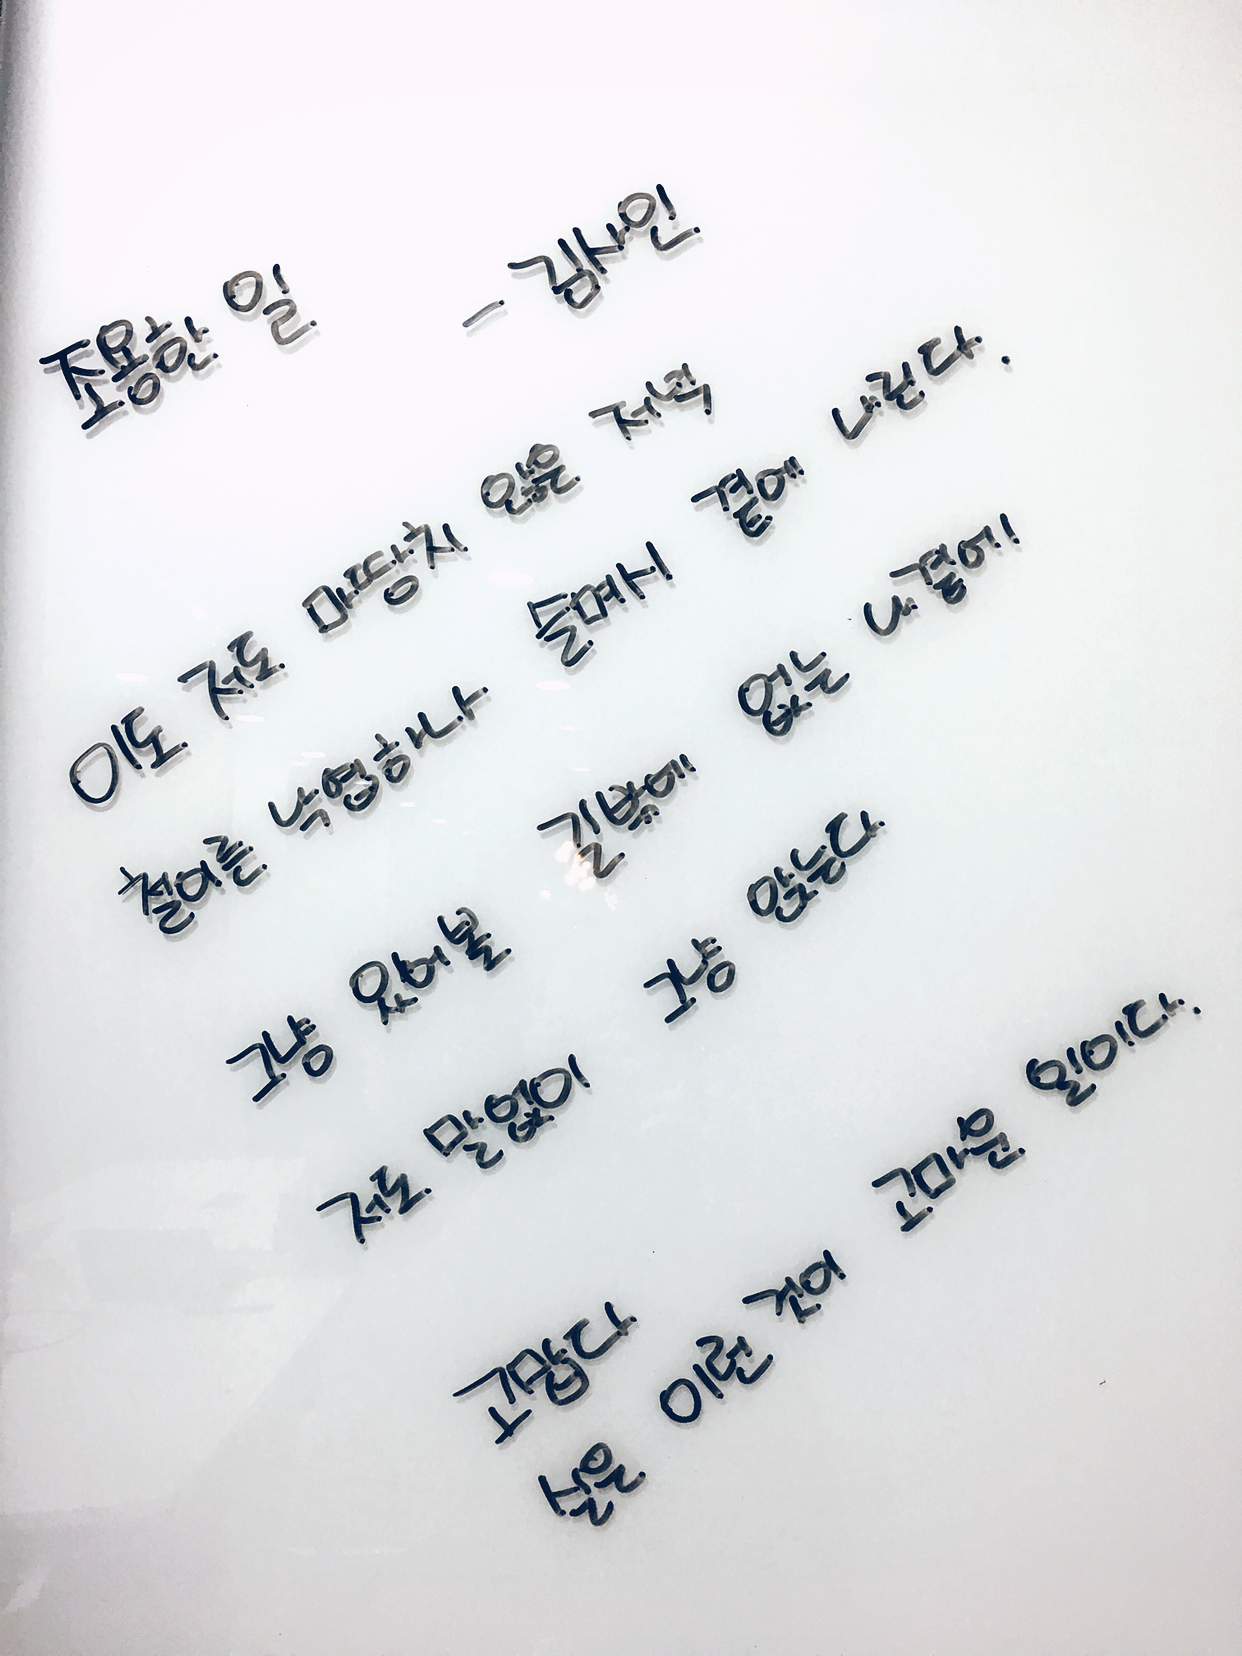 조용한 일 - 김사인
이도 저도 마땅치 않은 저녁
철이른 낙엽하나 슬며시 곁에 내린다.
그냥 있어볼 길밖에 없는 내 곁에
저도 말없이 그냥 앉는다
고맙다
실은 이런 것이 고마운 일이다.